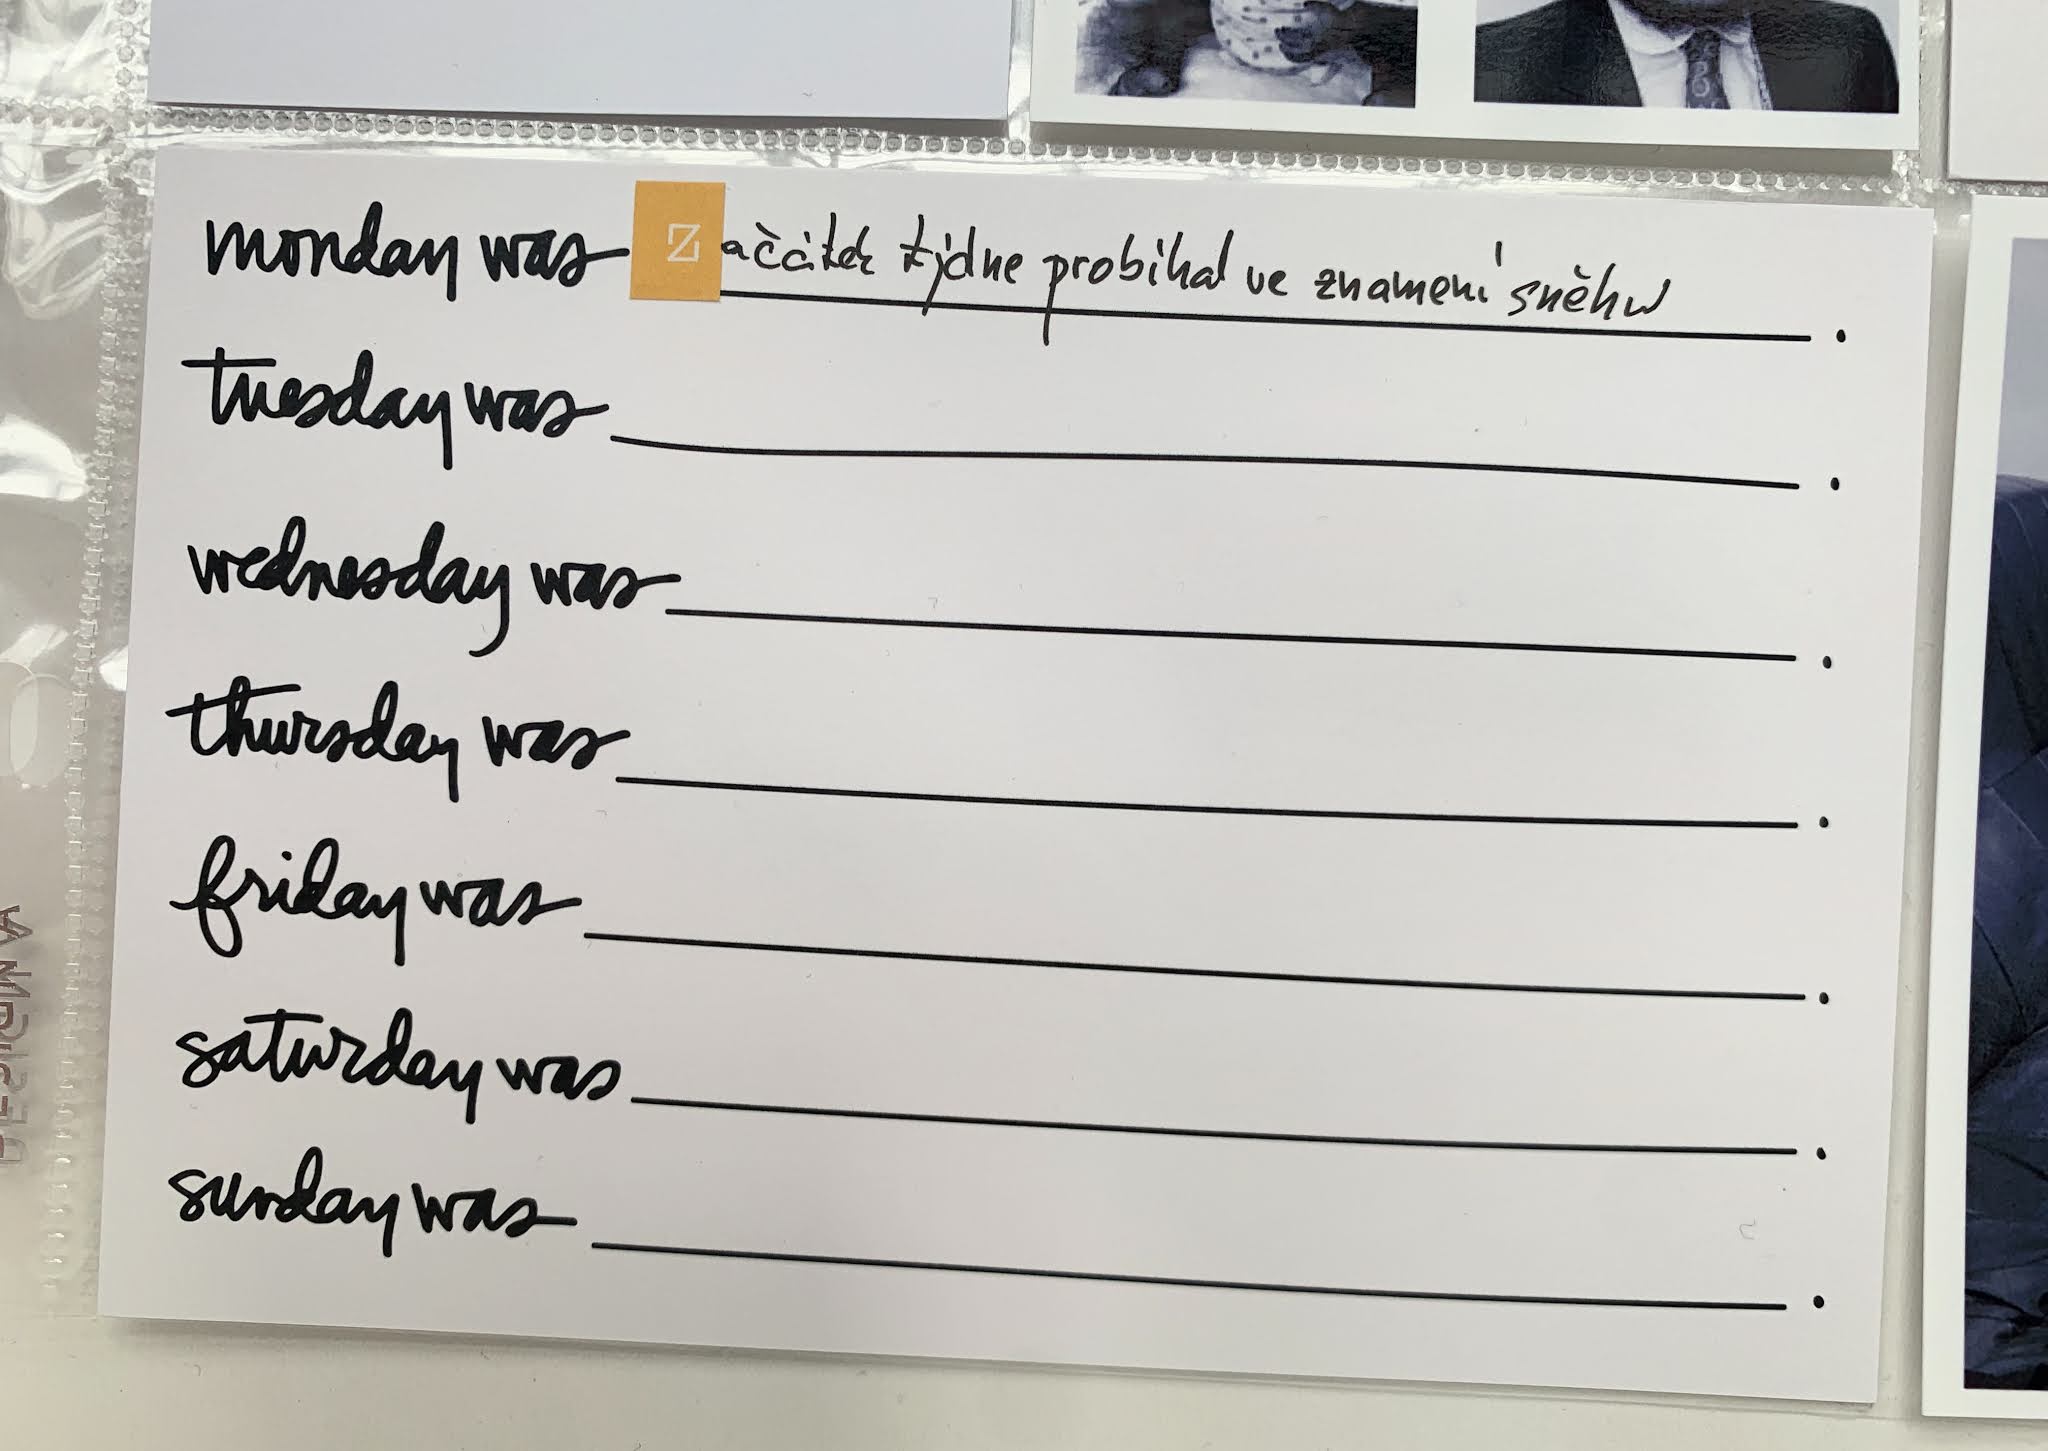 monday was Začátek týdne probíhal ve znamení sněhu.
tuesday was .
wednesday was .
thursday was .
friday was .
saturday was .
sunday was .